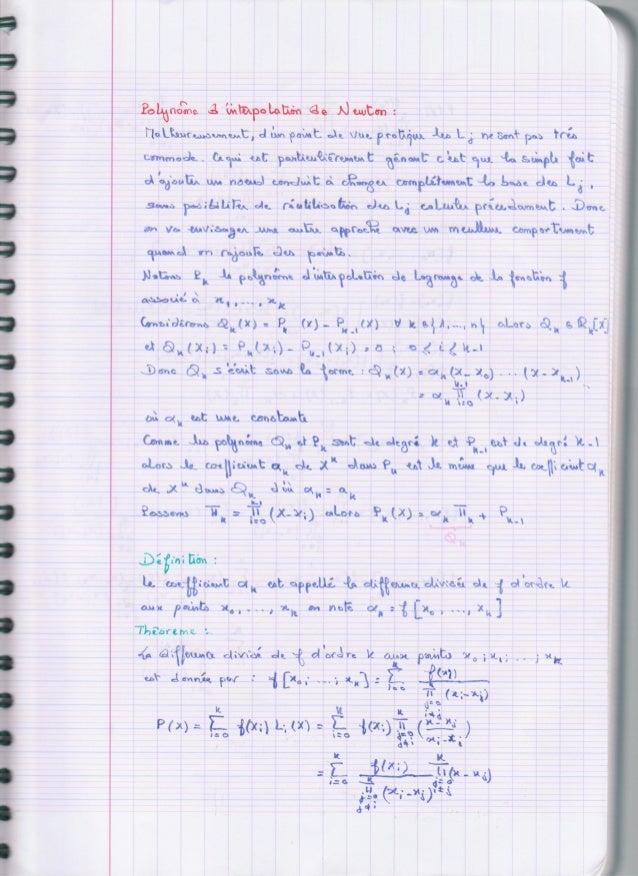 Polynôme d'interpolation de Newton :
Malheureusement, d'un point de vue pratique les Lj ne sont pas très
commode. Ce qui est particulièrement gênant c'est que la simple fait
d'ajouter un noeud conduit à changer complétement la base des Lj,
sans posibiliter de réutilisation des Lj calculer précedament. Donc
on va envisager une autre approche avec un meulleur comportement
quand on rajoute des points.
Notons Pk le polynôme d'interpolation de Lagrange de la fonction f
associé à x1, ..., xk
Considérons Qk(X) = Pk (X) - Pk-1(X) ∀ k ∈ {1, ..., n} alors Qk ∈ Rk[X]
et Qk(xi) = Pk(xi) - Pk-1(xi) = 0 ; 0 ≤ i ≤ k-1
Donc Qk s'écrit sous la forme : Qk(X) = αk(X-x0) ... (X-xk-1)
= αk ∏_{i=0}^{k-1} (X-xi)
où αk est une constante
Comme les polynôme Qk et Pk sont de degré k et Pk-1 est de degré k-1
alors le coefficient ak de X^k dans Pk est le même que le coefficient αk
de X^k dans Qk d'où αk = ak
Possons ∏k = ∏_{i=0}^{k-1} (X-xi) alors Pk(X) = αk ∏k + Pk-1
Qk
Définition :
Le coefficient αk est appellé la difference divisée de f d'ordre k
aux points x0, ..., xk on note αk = f[x0, ..., xk]
Théoreme :
La différence divisé de f d'ordre k aux points x0 ; x1 ; ... ; xk
est donnée par : f[x0 ; ... ; xk] = ∑_{i=0}^{k} f(xi) / ∏_{j=0, j≠i}^{k} (xi-xj)
P(X) = ∑_{i=0}^{k} f(xi) Li(X) = ∑_{i=0}^{k} f(xi) ∏_{j=0, j≠i}^{k} (x-xj / xi-xj)
= ∑_{i=0}^{k} f(xi) / ∏_{j=0, j≠i}^{k} (xi-xj) ∏_{j=0, i≠j}^{k} (x-xj)